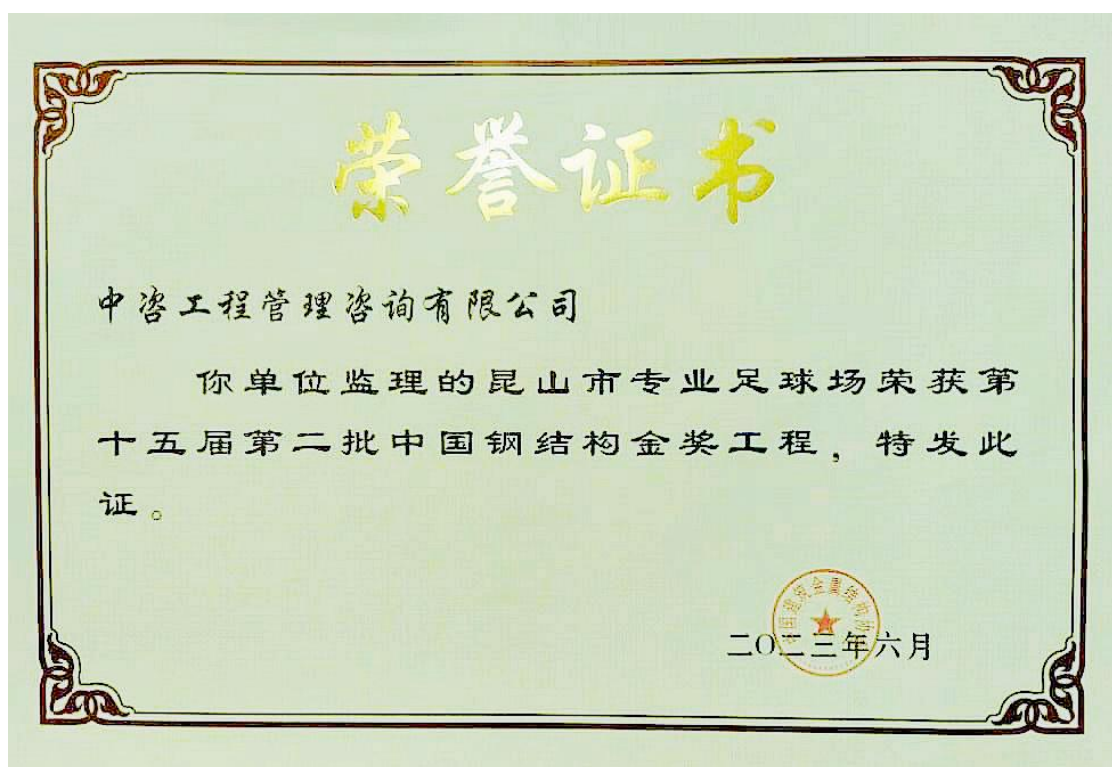 荣誉证书
中咨工程管理咨询有限公司
你单位监理的昆山市专业足球场荣获第
十五届第二批中国钢结构金奖工程，特发此
证。
中国建筑金属结构协会
二〇二三年六月